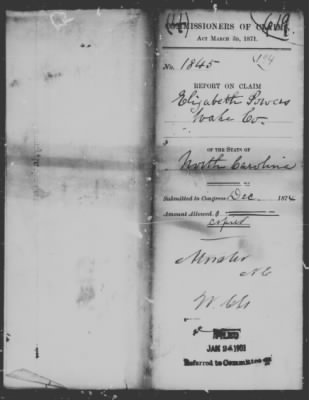 COMMISSIONERS OF CLAIMS
ACT MARCH 3D, 1871.
No. 1845
REPORT ON CLAIM
Elizabeth Powers
Wake Co.
OF THE STATE OF
North Carolina
Submitted to Congress Dec. 1874
Amount Allowed, $
copied
N C
FILED
JAN 24 1901
Referred to Committee